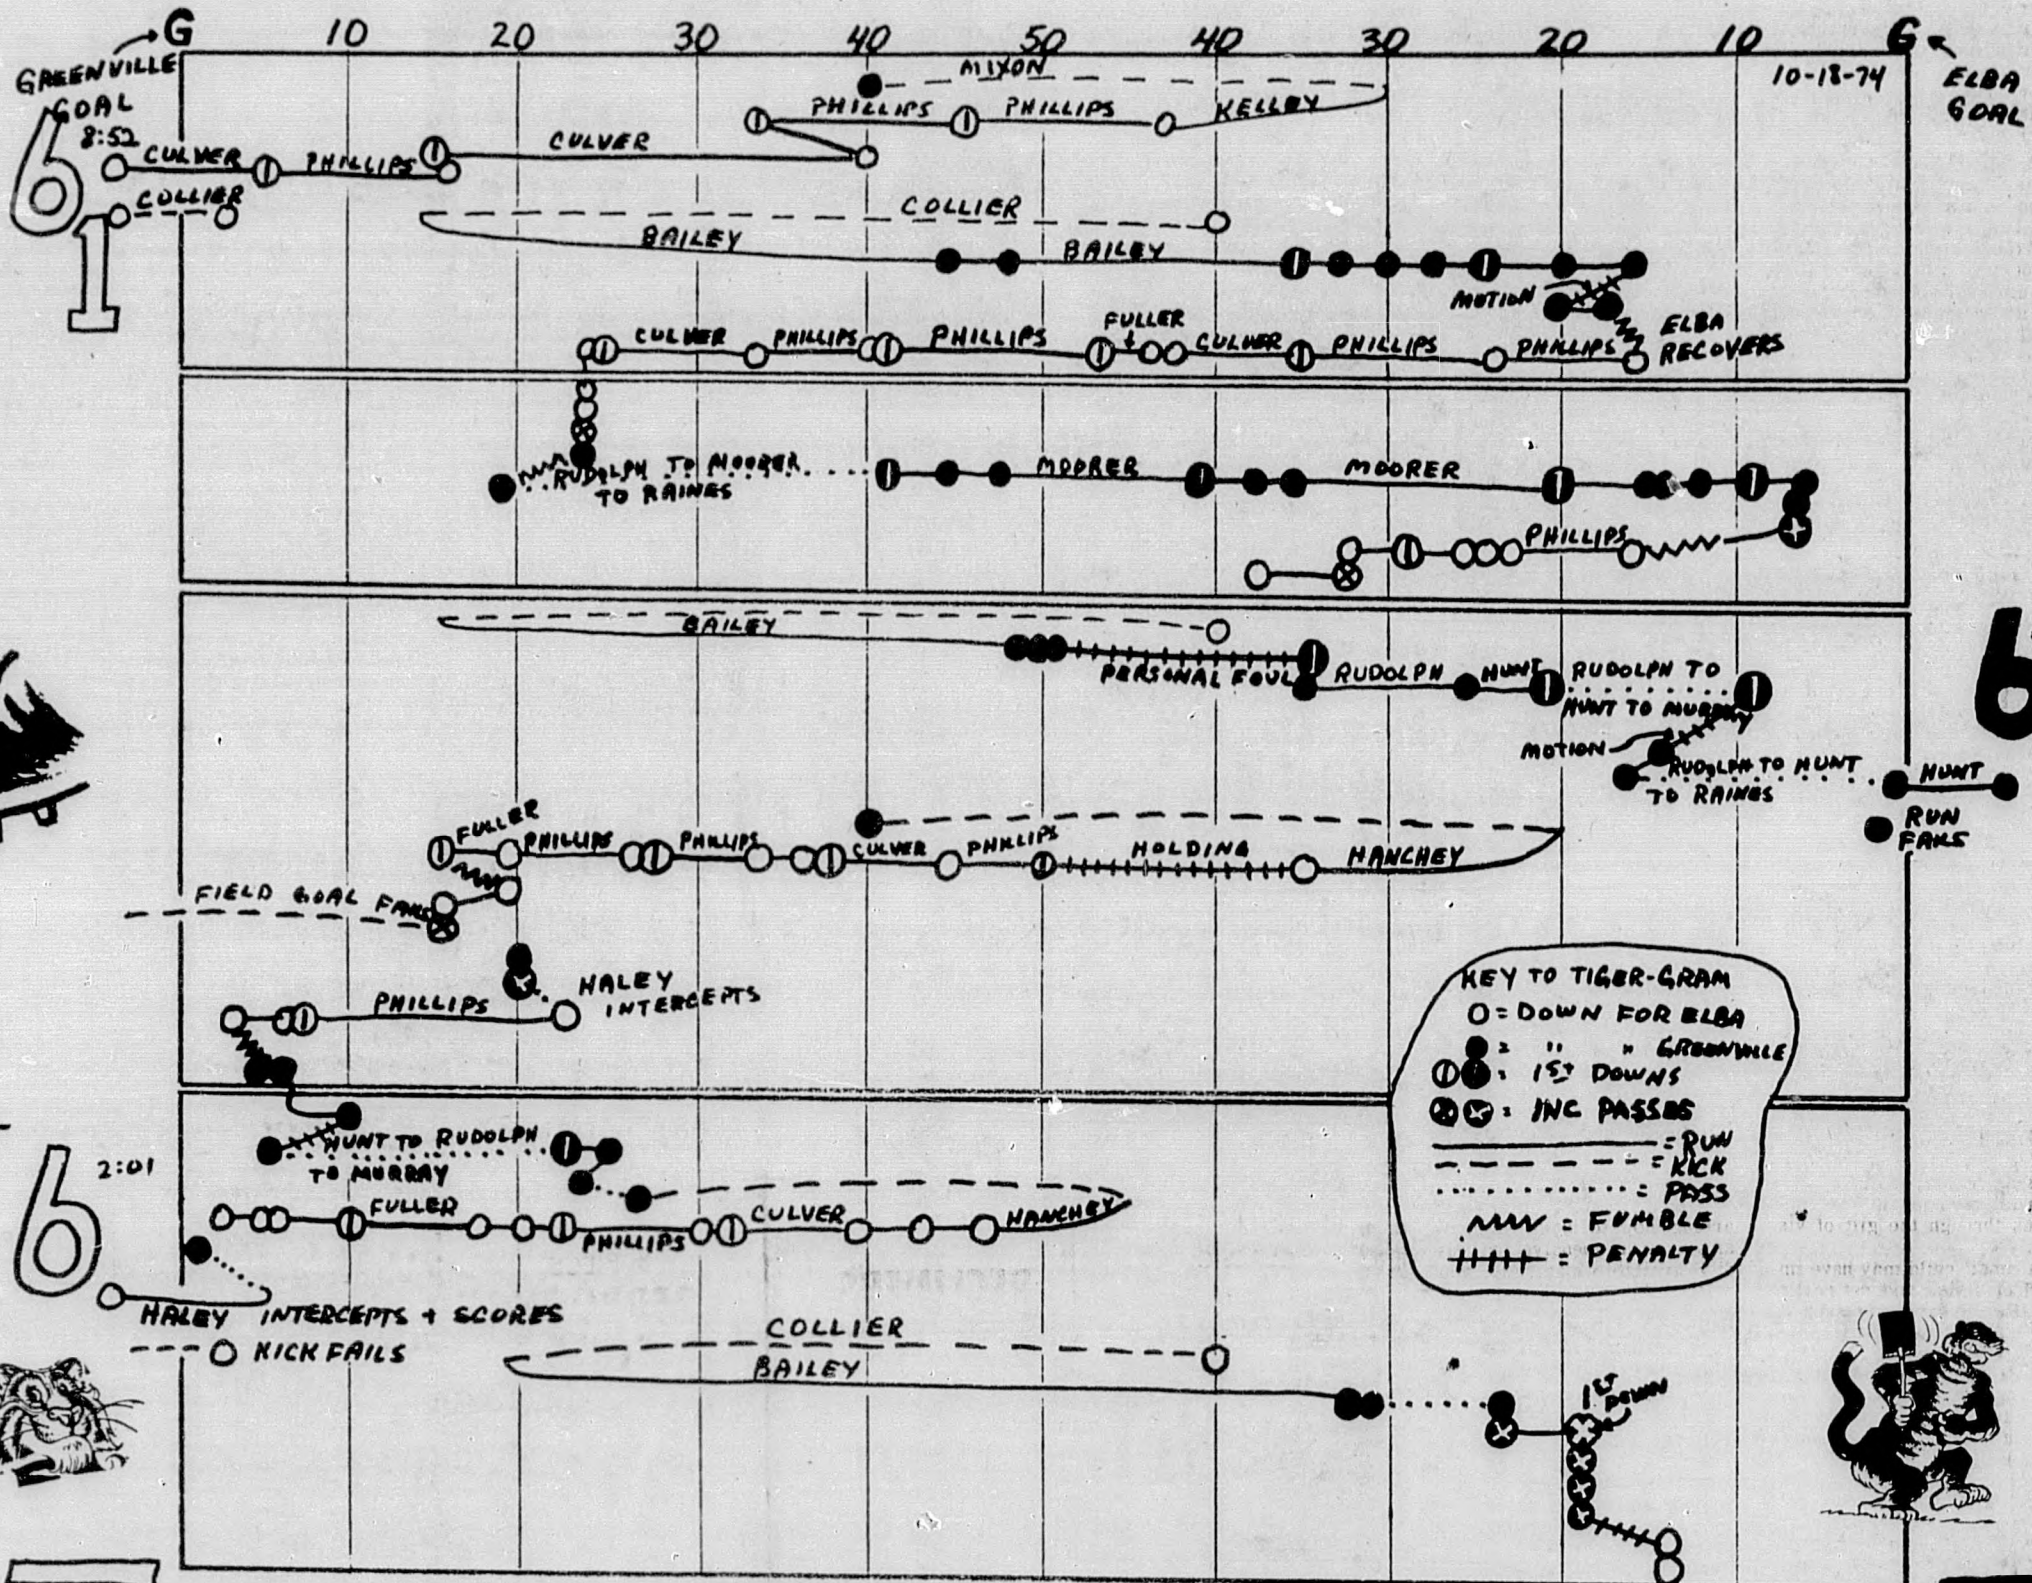 G 10 20 30 40 50 40 30 20 10 G
GREENVILLE GOAL
10-18-74
ELBA GOAL
MIXON
PHILLIPS PHILLIPS KELLEY
6
8:52
CULVER PHILLIPS CULVER
COLLIER
1
COLLIER
BAILEY BAILEY
MOTION
ELBA RECOVERS
CULVER PHILLIPS PHILLIPS FULLER CULVER PHILLIPS PHILLIPS
RUDOLPH TO MOORER MOORER MOORER
TO RAINES
PHILLIPS
BAILEY
6
PERSONAL FOUL RUDOLPH HUNT RUDOLPH TO
HUNT TO MURRAY
MOTION
RUDOLPH TO HUNT HUNT
TO RAINES
RUN FAILS
FULLER PHILLIPS PHILLIPS CULVER PHILLIPS HOLDING HANCHEY
FIELD GOAL FAILS
HALEY
INTERCEPTS
PHILLIPS
KEY TO TIGER-GRAM
O = DOWN FOR ELBA
● = " " GREENVILLE
= 1ST DOWNS
= INC PASSES
= RUN
= KICK
= PASS
= FUMBLE
= PENALTY
HUNT TO RUDOLPH
TO MURRAY
6
2:01
FULLER PHILLIPS CULVER HANCHEY
HALEY INTERCEPTS + SCORES
KICK FAILS
COLLIER
BAILEY
1ST DOWN